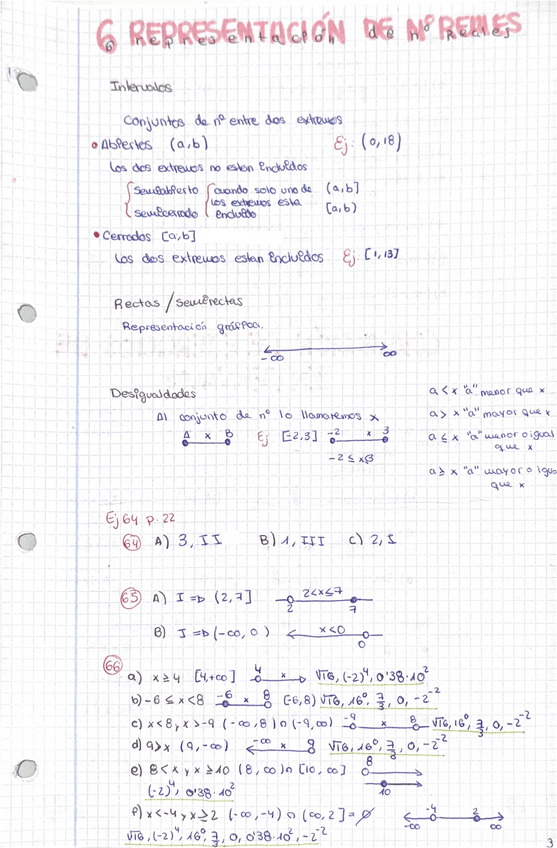 6 REPRESENTACIÓN DE Nº REALES
6 representación de nº Reales
Intervalos
Conjuntos de nº entre dos extremos
• Abiertos (a,b) Ej: (0,18)
Los dos extremos no estan incluidos
semiabierto cuando solo uno de (a,b]
los extremos esta
semicerrado incluido [a,b)
• Cerrados [a,b]
Los dos extremos estan incluidos Ej [1,13]
Rectas / Semirectas
Representación gráfica.
-∞ ∞
Desigualdades
Al conjunto de nº lo llamaremos x
A x B Ej [-2,3] -2 x 3
-2 ≤ x≤3
a < x "a" menor que x
a > x "a" mayor que x
a ≤ x "a" menor o igual
que x
a ≥ x "a" mayor o igua
que x
Ej 64 p. 22
64 A) 3, II B) 1, III C) 2, I
65 A) I => (2,7] 2<x≤7
2 7
B) I => (-∞, 0) x<0
0
66
a) x ≥ 4 [4,+∞] 4 x √16, (-2)⁴, 0'38·10²
b) -6 ≤ x < 8 -6 x 8 (-6,8) √16, 16⁰, 7/3, 0, -2⁻²
c) x < 8 y x > -9 (-∞,8) ∩ (-9,∞) -9 x 8 √16, 16⁰, 7/3, 0, -2⁻²
d) 9 > x (9,-∞) -∞ x 9 √16, 16⁰, 7/3, 0, -2⁻²
e) 8 < x y x ≥ 10 (8,∞) ∩ [10,∞] 8
10
(-2)⁴, 0'38·10²
f) x < -4 y x ≥ 2 (-∞,-4) ∩ (∞,2] = ∅ -4 2
-∞ ∞
√16, (-2)⁴, 16⁰, 7/3, 0, 0'38·10², -2⁻²
3